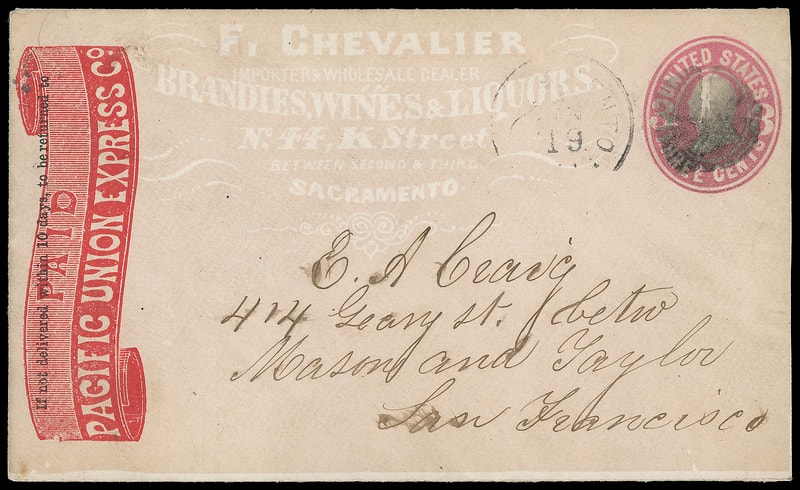 F. CHEVALIER
IMPORTER & WHOLESALE DEALER
IN
BRANDIES, WINES & LIQUORS.
No. 44, K Street
BETWEEN SECOND & THIRD
SACRAMENTO
19
UNITED STATES
CENTS
If not delivered within 10 days, to be returned to
PAID
PACIFIC UNION EXPRESS Co.
E. A Craig
414 Geary st. betw
Mason and Taylor
San Francisco